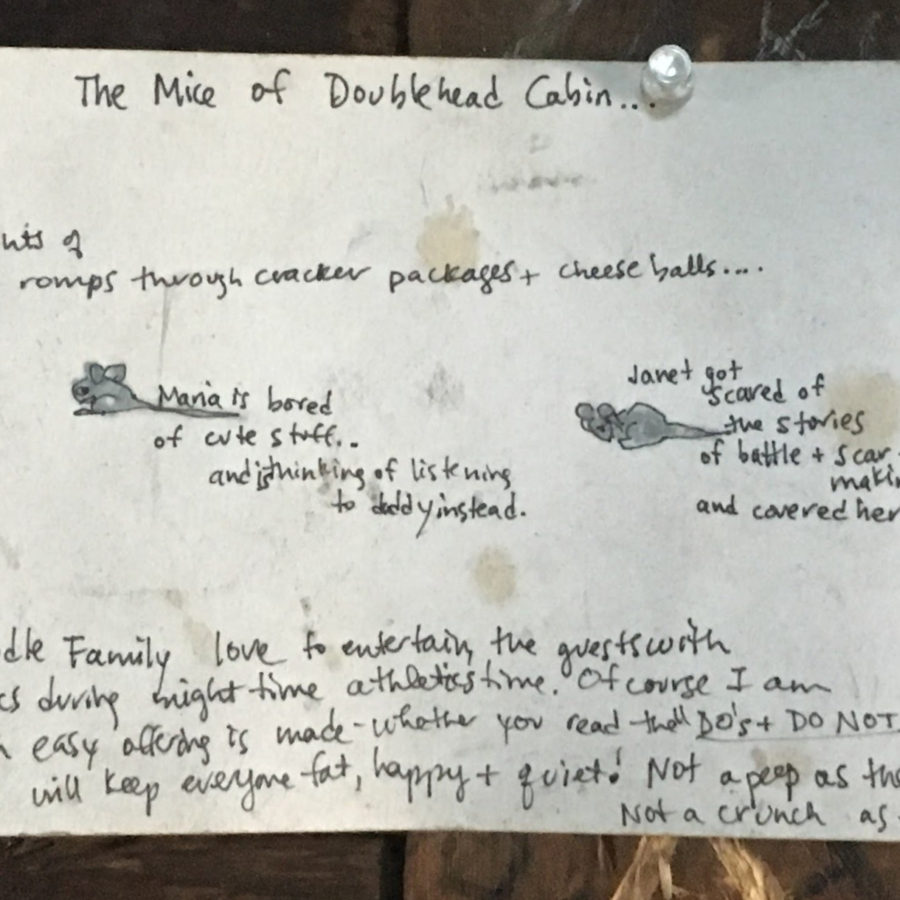 The Mice of Doublehead Cabin...
hts of
romps through cracker packages + cheese balls....
Maria is bored
of cute stuff..
and is thinking of listening
to daddy instead.
Janet got
scared of
the stories
of battle + scar
makin
and covered her
dle Family love to entertain, the guests with
cs during night time athletics time. Of course I am
easy offering is made - whether you read the DO's + DO NOT
will keep everyone fat, happy + quiet! Not a peep as the
Not a crunch as